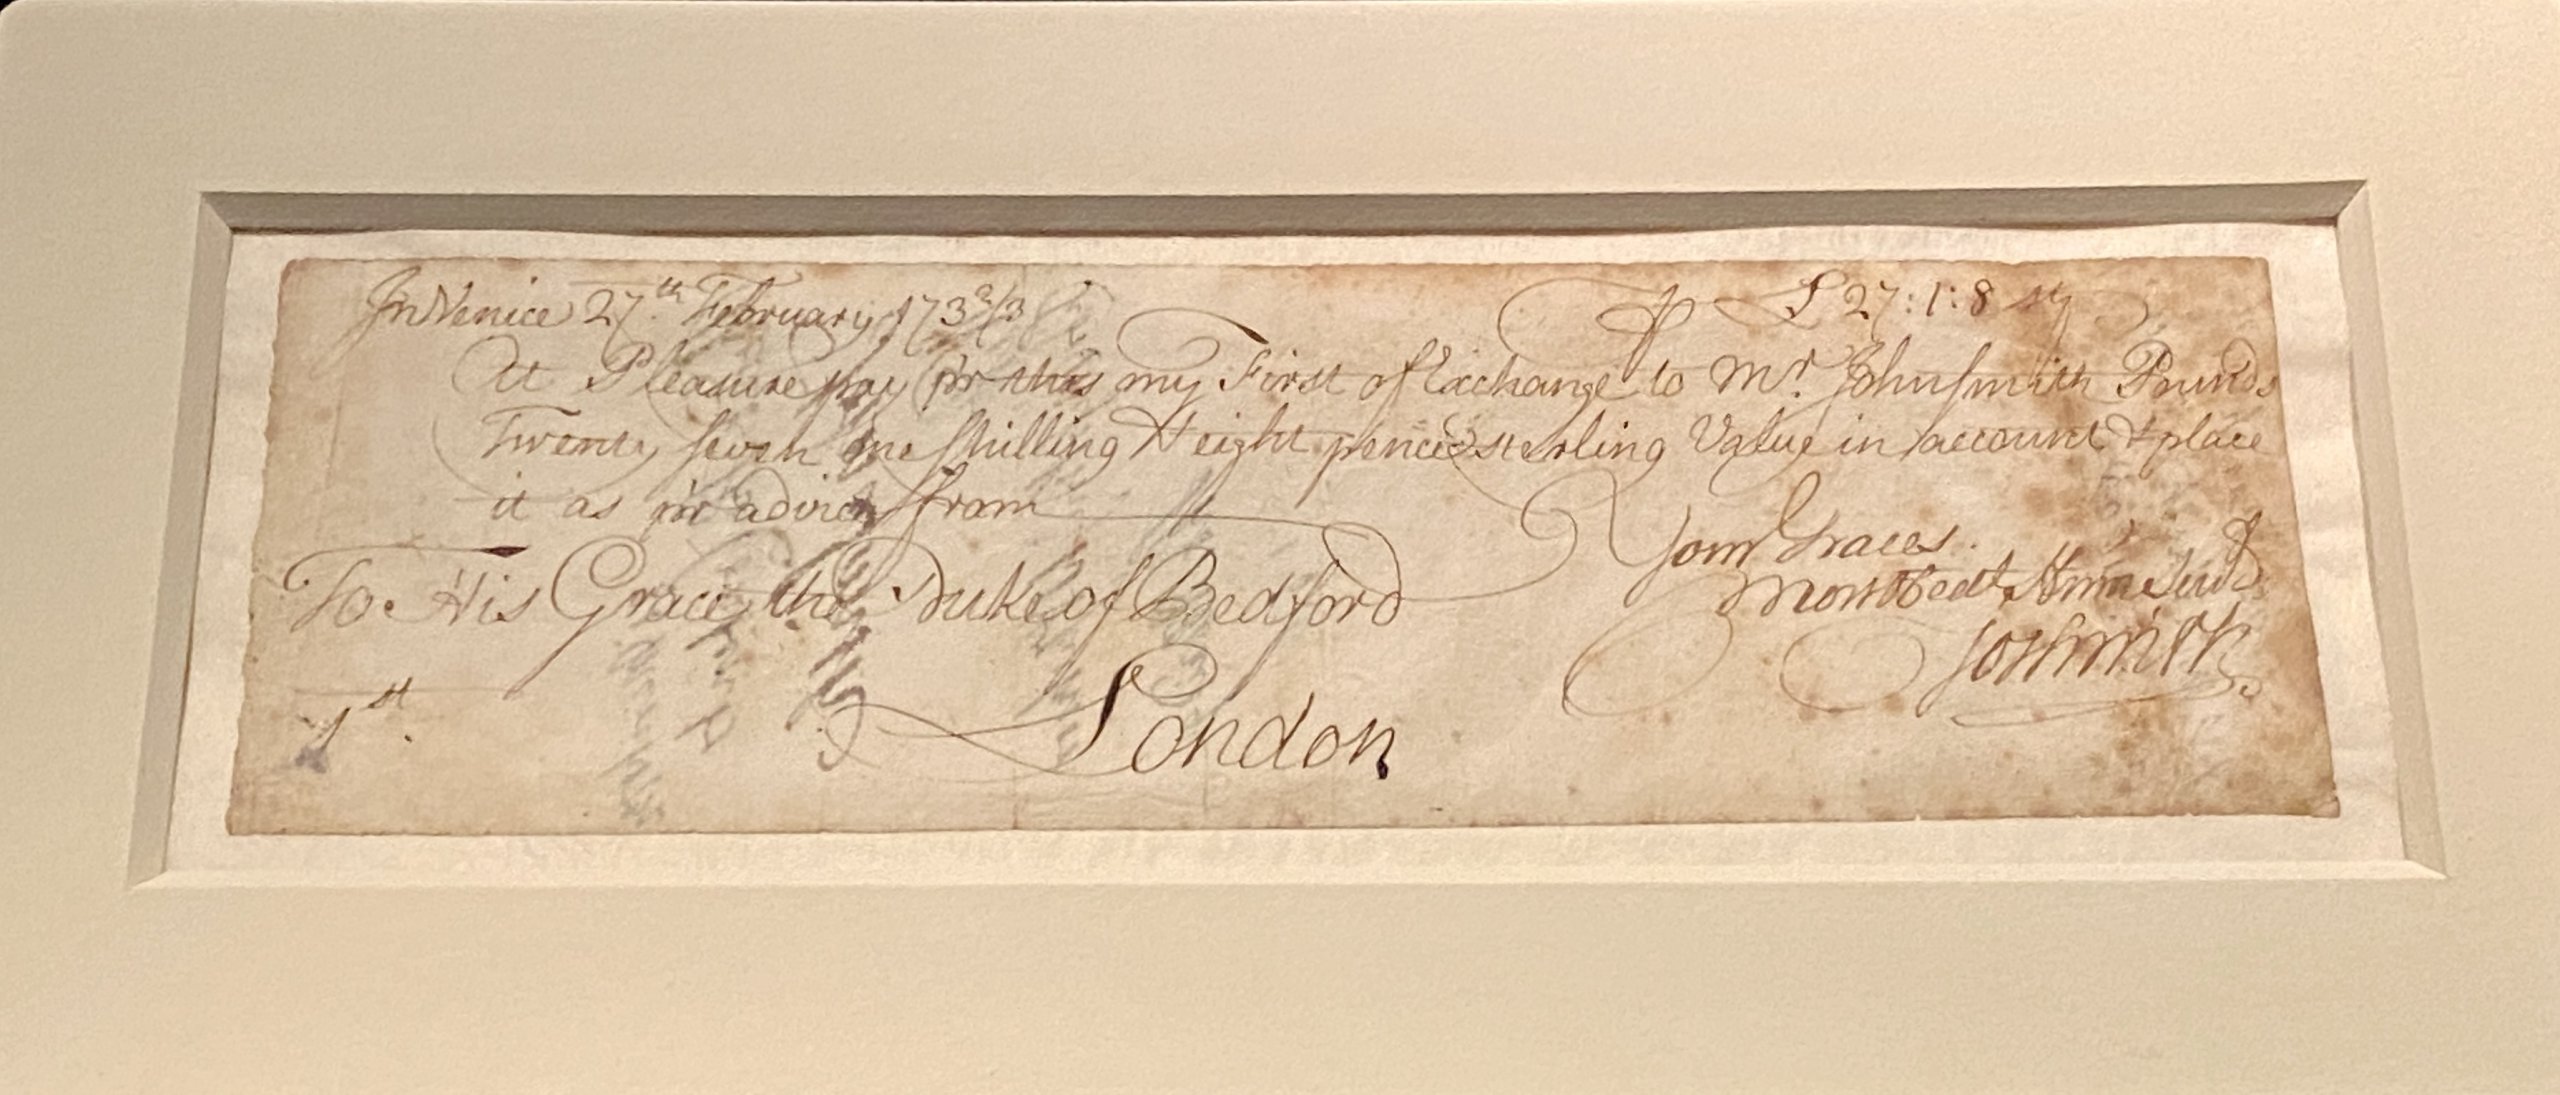 In Venice 27.th February 173 2/3 £ 27:1:8 stg
At Pleasure pay pr this my First of Exchange to Mr. John Smith Pounds
Twenty seven one shilling & eight pence sterling Value in account & place
it as pr advice from
Your Graces
To His Grace the Duke of Bedford
Most Obedt Hum Servt
Jos Smith
1st. London